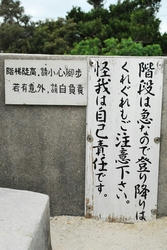 階梯陡高,請小心腳步
若有意外,請自負責
階段は急なので登り降りは
くれぐれもご注意下さい。
怪我は自己責任です。